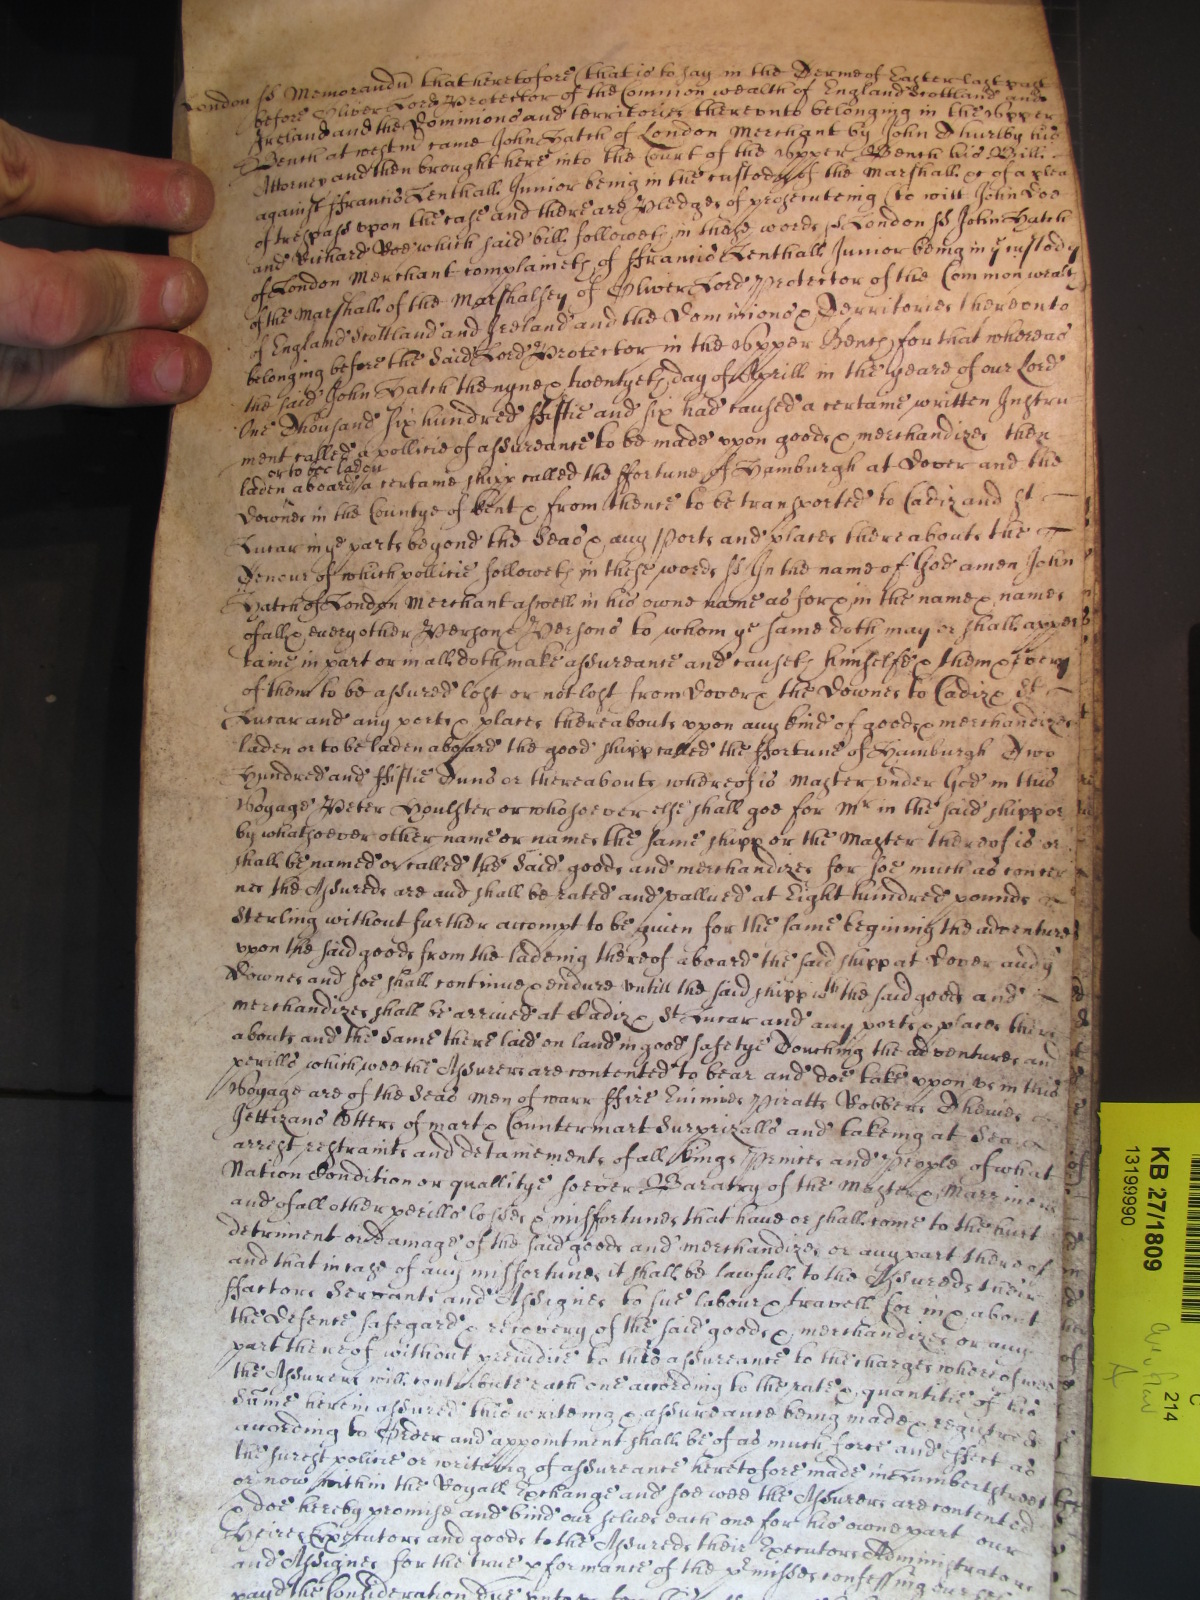 London ss Memorandu that heretofore (that is to say in the Terme of Easter last past
before Oliver Lord Protector of the Common wealth of England Scottland and
Ireland and the Dominions and territories thereunto belonging in the Upper
Bench at westm came John Hatch of London Merchant by John Thurlby his
Attorney and then brought here into the Court of the Upper Bench his Bill
against Ffrancis Lenthall Junior being in the custody of the Marshall &c of a plea
of trespass upon the case and there are Pledges of prosecuteing (to witt John Doe
and Richard Roe which said bill followeth in these words ss London ss John Hatch
of London Merchant complaineth of Ffrancis Lenthall Junior being in ye custody
of the Marshall of the Marshalsey of Oliver Lord Protector of the Common wealth
of England Scottland and Ireland and the Dominions & Territories thereunto
belonging before the said Lord Protector in the Upper Bench for that whereas
the said John Hatch the nyne & twentyeth day of Aprill in the yeare of our Lord
One Thousand six hundred Fiftie and six had caused a certaine written Instru-
ment called a pollicie of assureance to be made upon goods & merchandizes then
laden aboard or to bee laden a certaine shipp called the Ffortune of Hamburgh at Dover and the
Downes in the Countye of Kent & from thence to be transported to Cadiz and St
Lucar in ye parts beyond the Seas & any Ports and places thereabouts the
Tenour of which pollicie followeth in these words ss In the name of God amen John
Hatch of London Merchant aswell in his owne name as for & in the name & names
of all & every other Person & Persons to whom ye same doth may or shall apper
taine in part or in all doth make assureance and causeth himselfe & them & every
of them to be assured lost or not lost from Dover & the Downes to Cadiz & St
Lucar and any ports & places thereabouts upon any kind of goods & merchandizes
laden or to be laden aboard the good shipp called the Ffortune of Hamburgh Two
Hundred and Ffiftie Tuns or thereabouts whereof is Master under God in this
Voyage Peter Houlster or whosoever else shall goe for Mr in the said shipp or
by whatsoever other name or names the same shipp or the Master thereof is or
shall be named or called the said goods and merchandizes for soe much as concer
nes the Assureds are and shall be rated and vallued at Eight hundred pounds
Sterling without further accompt to be given for the same begining the adventure
upon the said goods from the ladeing thereof aboard the said shipp at Dover and ye
Downes and soe shall continue & endure untill the said shipp wth the said goods and
merchandizes shall be arrived at Cadiz & St Lucar and any ports & places there
abouts and the same there laid on land in good safetye Touching the adventures and
perills which wee the Assurers are contented to bear and doe take upon us in this
Voyage are of the Seas men of warr Ffire Enimies Piratts Robbers Theives
Jettizons letters of mart & Countermart Surprizalls and takeing at Sea
arrest restraints and detainements of all Kings Princes and People of what
Nation Condition or quallitye soever Baratry of the Master & Marriners
and of all other perills losses & missfortunes that have or shall come to the hurt
detriment or damage of the said goods and merchandizes or any part thereof
and that in case of any missfortunes it shall be lawfull to the Assureds their
Ffactors Servants and Assignes to sue labour & travell for in & about
the defence safegard & recovery of the said goods & merchandizes or any
part thereof without prejudice to this assureance to the charges whereof wee
the Assurers will contribute each one according to the rate & quantitie of his
summe herein assured this writeing & assureance being made & registred
according to Order and appointment shall be of as much force and effect as
the surest policie or writeing of assureance heretofore made in Lumberdstreet
or now within the Royall Exchange and soe wee the Assurers are contented
& doe hereby promise and bind our selves each one for his owne part our
Heires Executors and goods to the Assureds their Executors Administrators
and Assignes for the true pformance of the pmisses confessing our selves
payd the Consideration due unto us
KB 27/1809
1319990
214